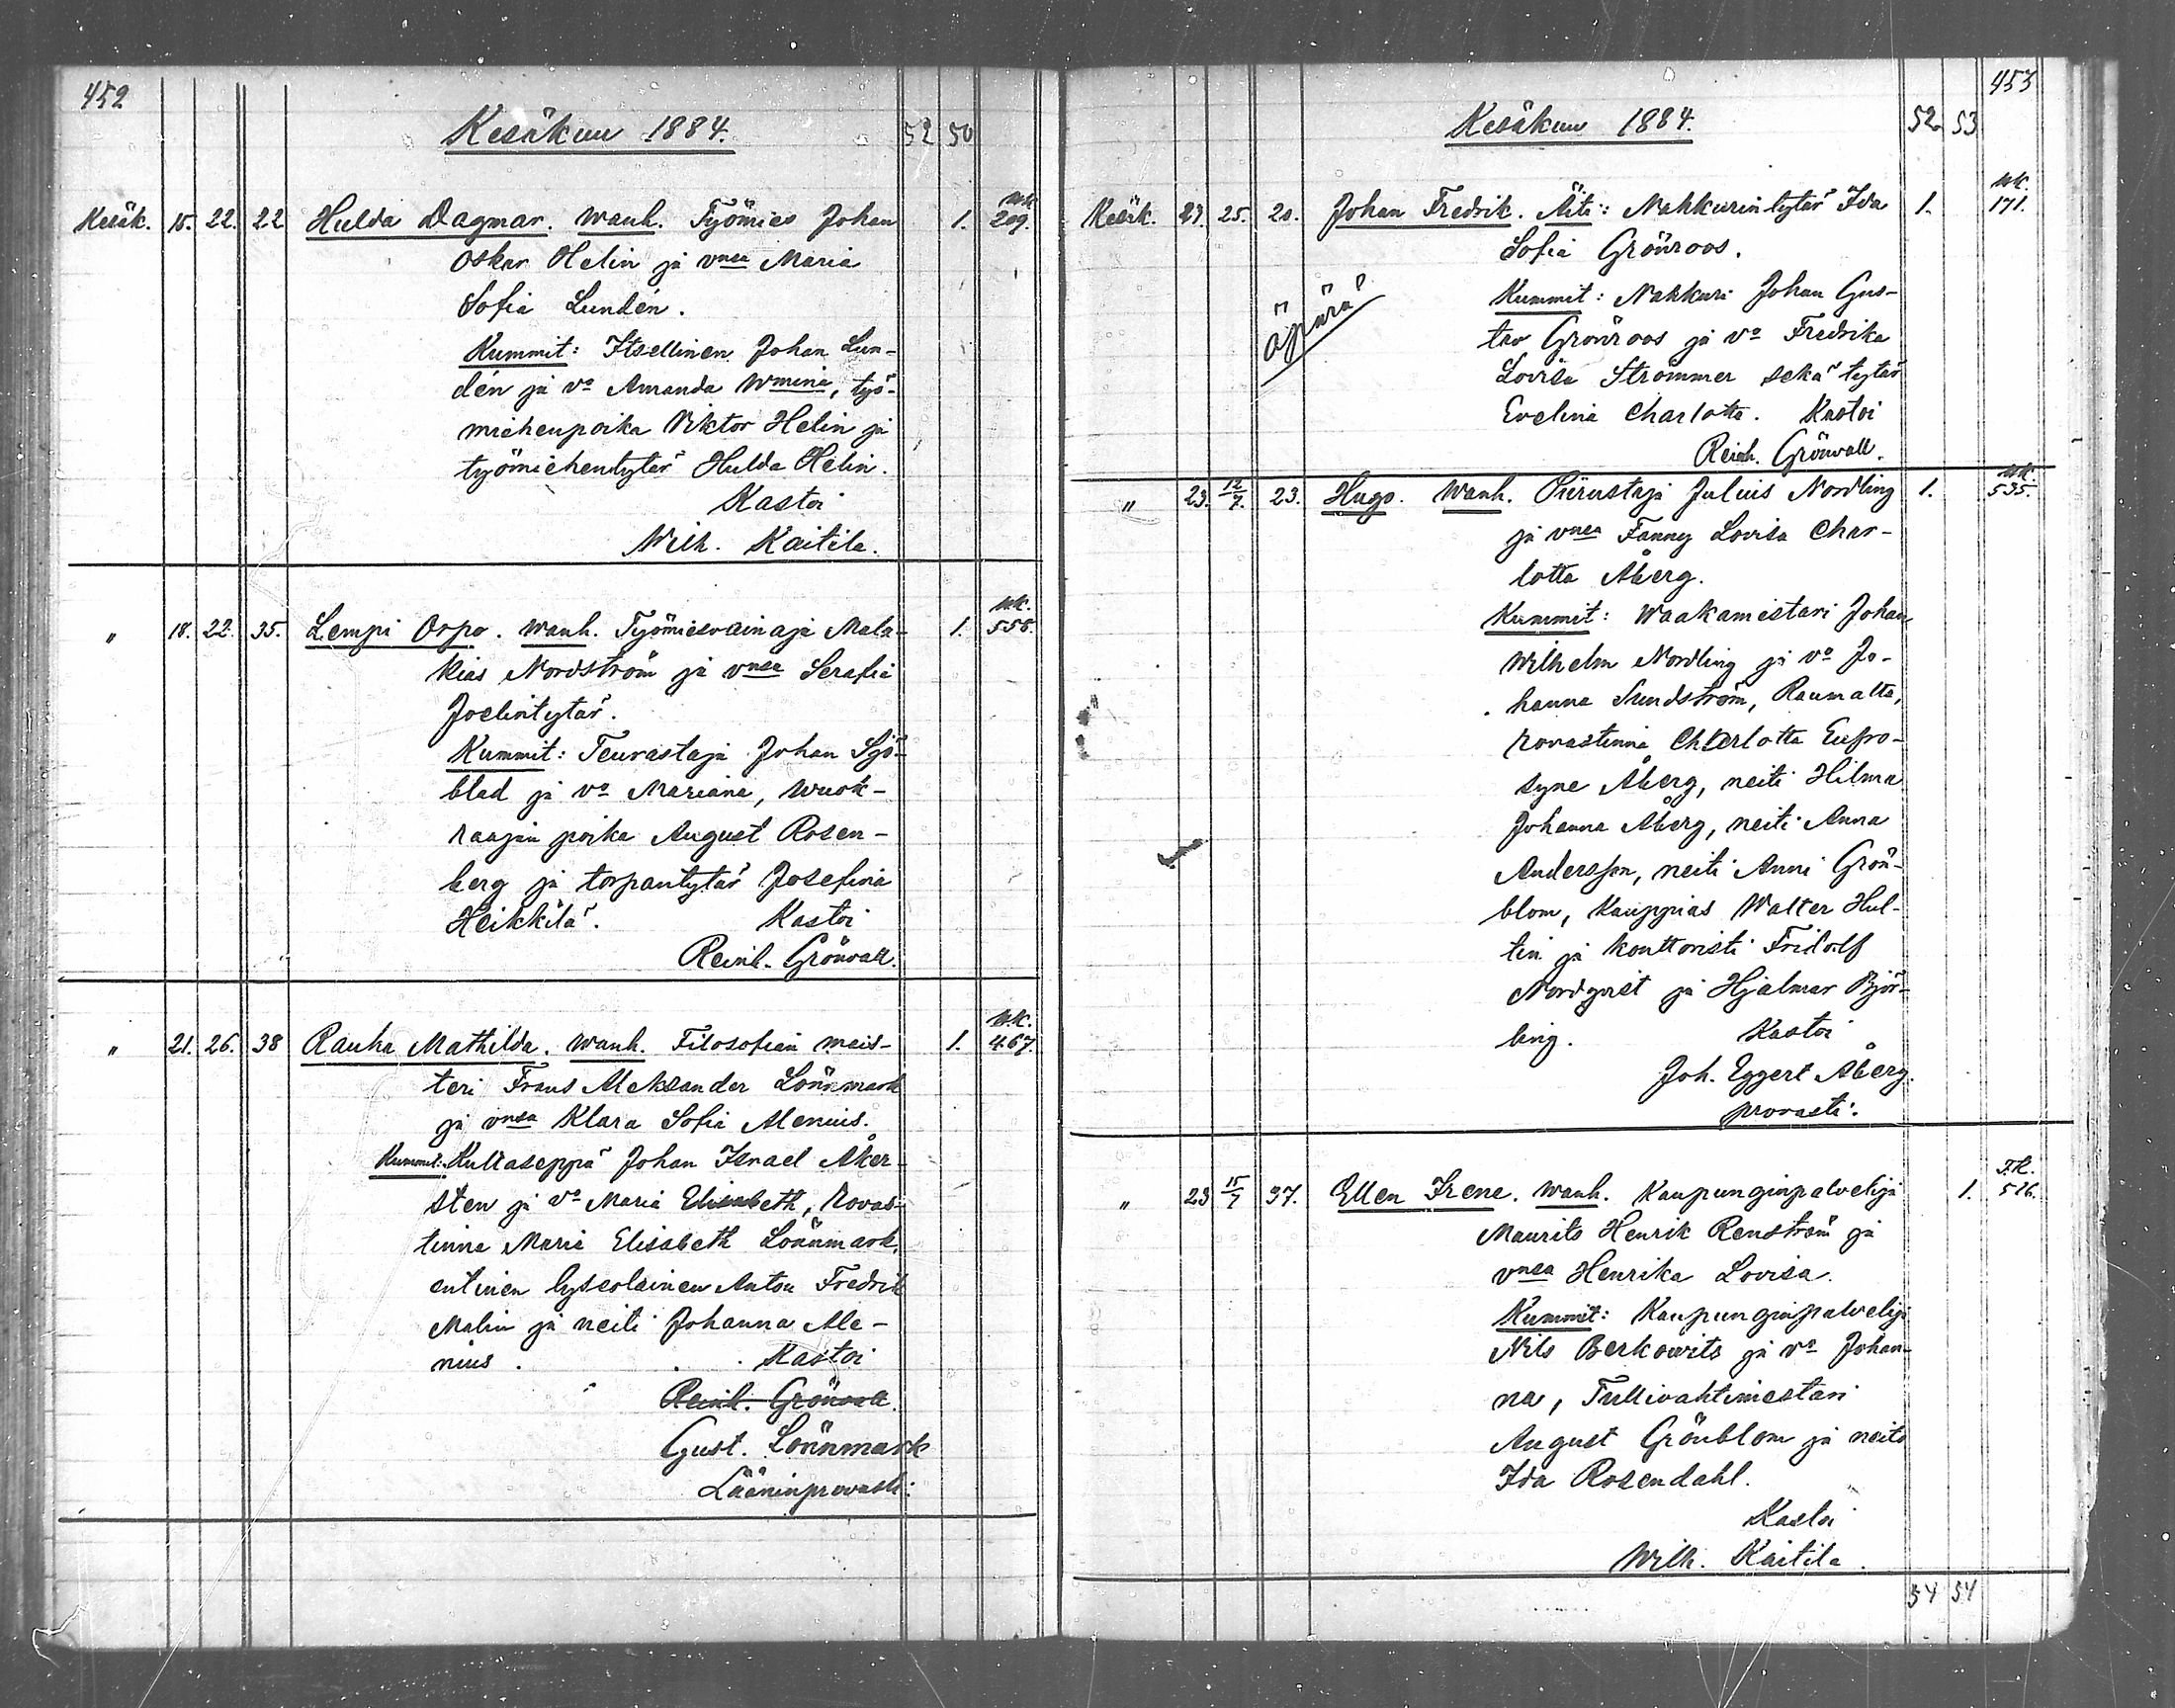 452
Kesäkuu 1884. 52 50
Kesäk. 15. 22. 22 Hulda Dagmar. Wanh. Työmies Johan 1. wk. 209.
Oskar Helin ja vnsa Maria
Sofia Lundén.
Kummit: Itsellinen Johan Lun-
dén ja vo Amanda Wmina, työ-
miehenpoika Viktor Helin ja
työmiehentytär Hulda Helin.
Kastoi
Wilh. Kaitila.
" 18. 22. 35. Lempi Orpo. Wanh. Työmiesvainaja Mala- 1. wk. 558.
kias Nordström ja vnsa Serafia
Joelintytär.
Kummit: Teurastaja Johan Sjö-
blad ja vo Mariana, wuok-
raajan poika August Rosen-
berg ja torpantytär Josefina
Heikkilä. Kastoi
Reinh. Grönvall.
" 21. 26. 38 Rauha Mathilda. Wanh. Filosofian mais- 1. wk. 467.
teri Frans Aleksander Lönnmark
ja vnsa Klara Sofia Alenius.
Kummit: Kultaseppä Johan Israel Åker-
sten ja vo Maria Elisabeth, Rovas-
tinna Maria Elisabeth Lönnmark,
entinen lyseolainen Anton Fredrik
Malin ja neiti Johanna Ale-
nius. Kastoi
Reinh. Grönvall.
Gust. Lönnmark
Lääninprovasti.
453
Kesäkuu 1884. 52. 53
Kesäk. 23. 25. 20. Johan Fredrik. Äiti: Nahkurintytär Ida 1. wk. 171.
Sofia Grönroos.
äpärä
Kummit: Nahkuri Johan Gus-
tav Grönroos ja vo Fredrika
Lovisa Strömmer sekä tytär
Evelina Charlotta. Kastoi
Reinh. Grönvall.
" 23. 12/7. 23. Hugo. Wanh. Piirustaja Julius Nordling 1. wk. 535.
ja vnsa Fanny Lovisa Char-
lotta Åberg.
Kummit: Waakamestari Johan
Wilhelm Nordling ja vo Jo-
hanna Sundström, Raumalta,
rovastinna Charlotta Eufro-
syne Åberg, neiti Hilma
Johanna Åberg, neiti Anna
Andersson, neiti Anni Grön-
blom, kauppias Walter Hul-
tin ja konttoristi Fridolf
Nordqvist ja Hjalmar Björ-
ling. Kastoi
Joh. Eggert Åberg.
provasti.
" 23 15/7 37. Ellen Irene. Wanh. Kaupunginpalvelija 1. T.K. 516.
Maurits Henrik Renström ja
vnsa Henrika Lovisa.
Kummit: Kaupunginpalvelija
Nils Berkowits ja vo Johan-
na, Tullivahtimestari
August Grönblom ja neito
Ida Rosendahl.
Kastoi
Wilh. Kaitila.
54 54